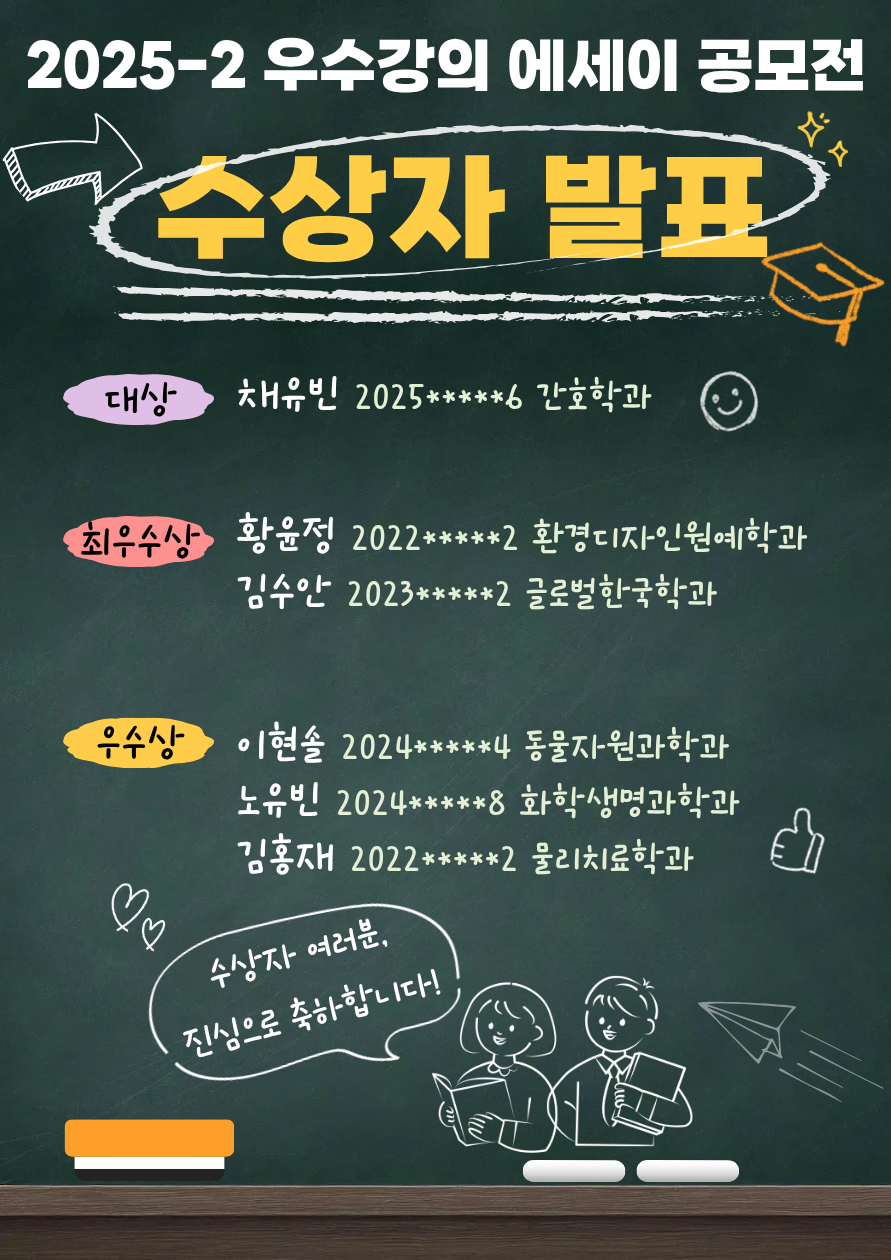 2025-2 우수강의 에세이 공모전
수상자 발표
대상 채유빈 2025*****6 간호학과
최우수상 황윤정 2022*****2 환경디자인원예학과
김수안 2023*****2 글로벌한국학과
우수상 이현솔 2024*****4 동물자원과학과
노유빈 2024*****8 화학생명과학과
김홍재 2022*****2 물리치료학과
수상자 여러분,
진심으로 축하합니다!